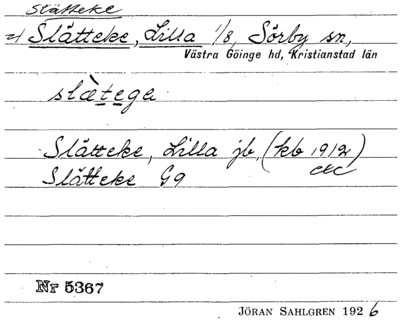 Slätteke
=/ Slätteke, Lilla 1/8, Sörby sn,
Västra Göinge hd, Kristianstad län
slätega
Slätteke, Lilla jb, (kb 1912)
etc
Slätteke G9
Nr 5367
JÖRAN SAHLGREN 1926